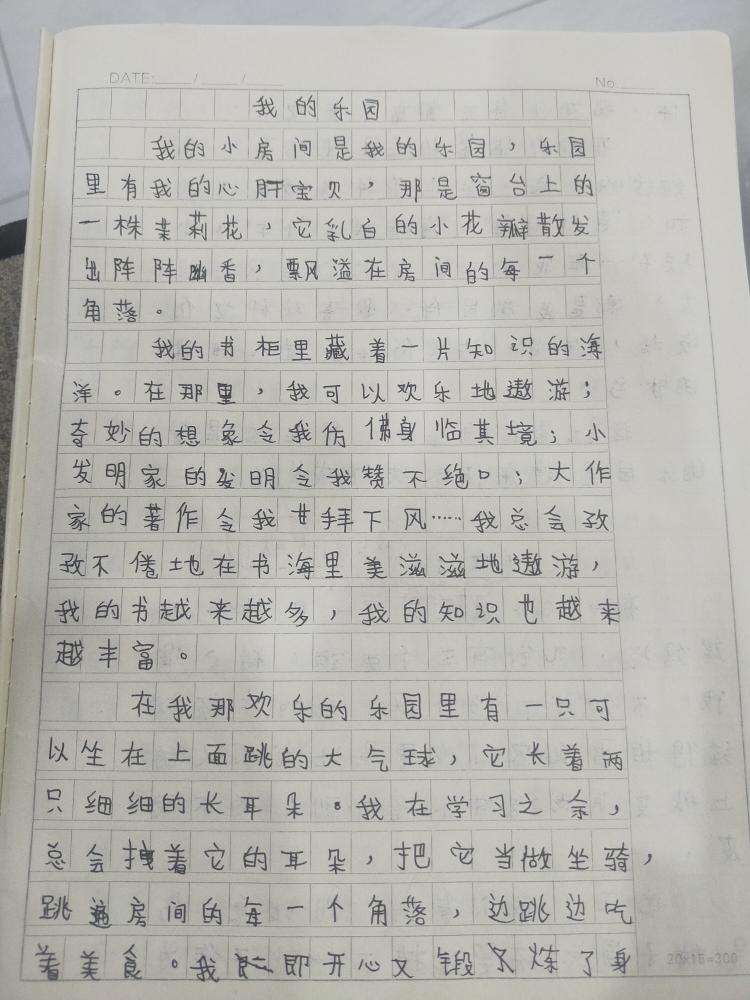 DATE: / /
No.
我的乐园
我的小房间是我的乐园，乐园
里有我的心肝宝贝，那是窗台上的
一株茉莉花，它乳白的小花瓣散发
出阵阵幽香，飘溢在房间的每一个
角落。
我的书柜里藏着一片知识的海
洋。在那里，我可以欢乐地遨游；
奇妙的想象令我仿佛身临其境；小
发明家的发明令我赞不绝口；大作
家的著作令我甘拜下风……我总会孜
孜不倦地在书海里美滋滋地遨游，
我的书越来越多，我的知识也越来
越丰富。
在我那欢乐的乐园里有一只可
以坐在上面跳的大气球，它长着两
只细细的长耳朵。我在学习之余，
总会拽着它的耳朵，把它当做坐骑，
跳遍房间的每一个角落，边跳边吃
着美食。我 即开心又锻 炼了身
20×15=300